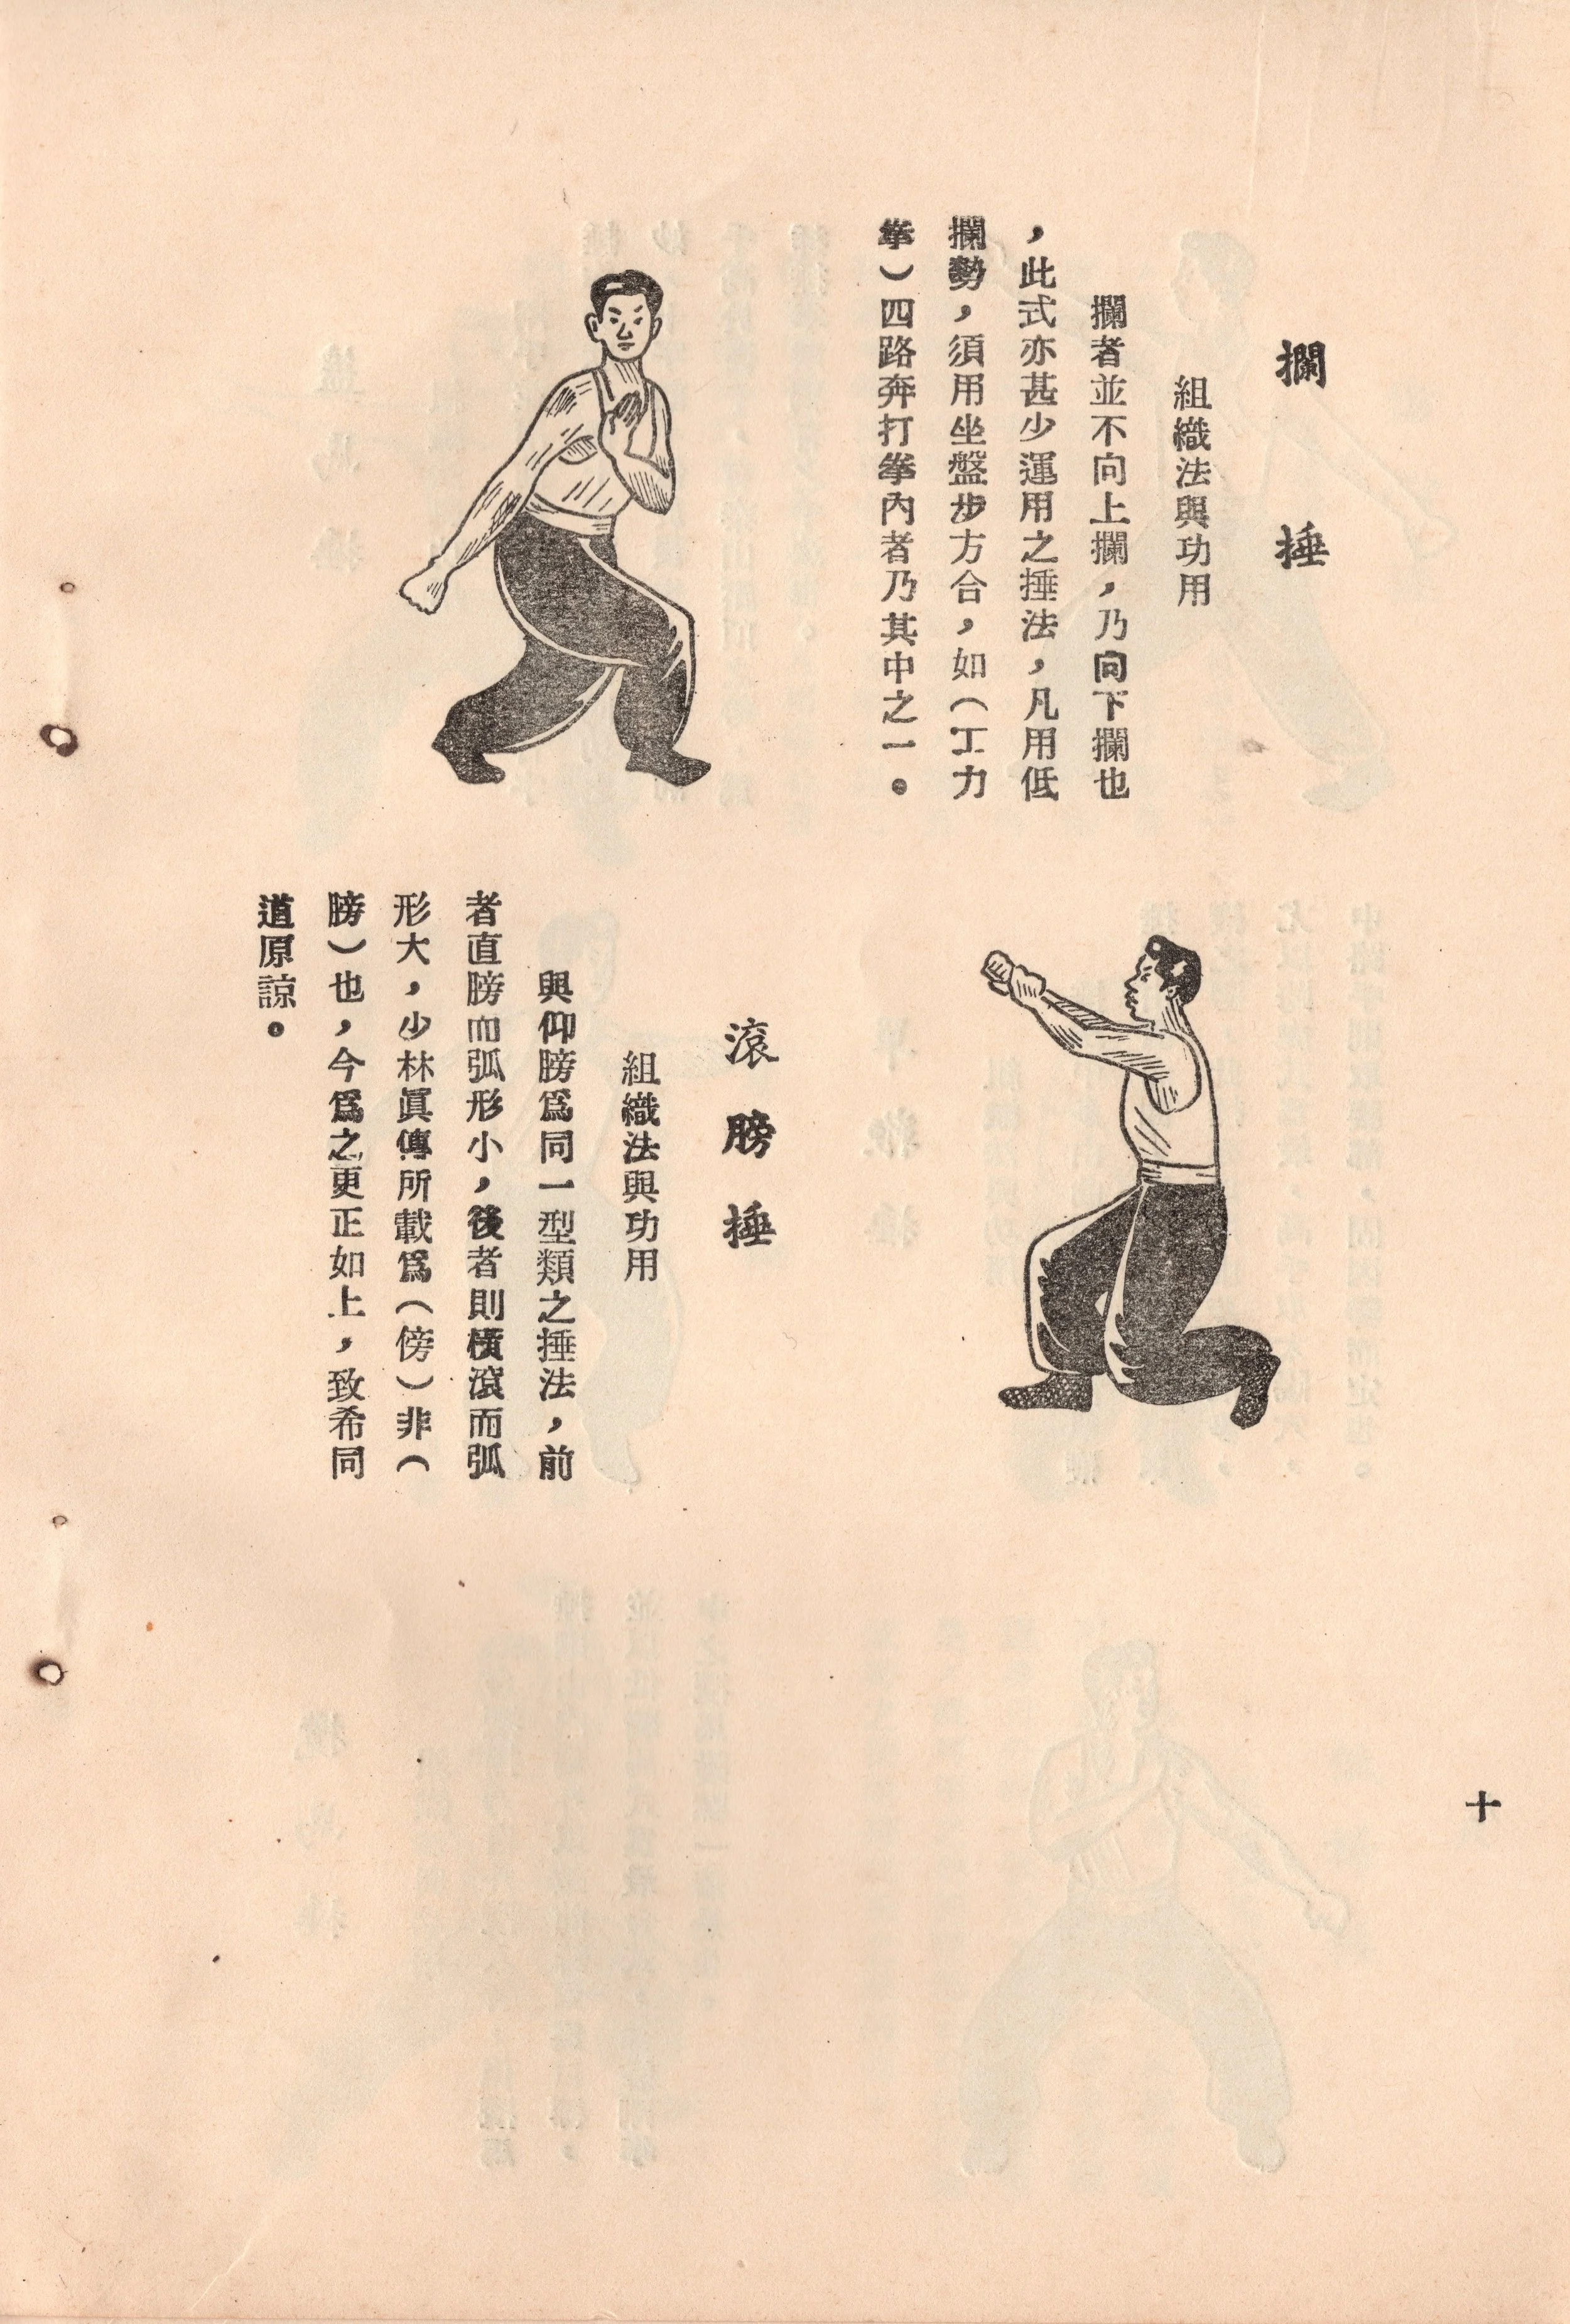 攔捶
組織法與功用
攔者並不向上攔，乃向下攔也
，此式亦甚少運用之捶法，凡用低
攔勢，須用坐盤步方合，如（工力
拳）四路奔打拳內者乃其中之一。
滾膀捶
組織法與功用
與仰膀爲同一型類之捶法，前
者直膀而弧形小，後者則橫滾而弧
形大，少林眞傳所載爲（傍）非（
膀）也，今爲之更正如上，致希同
道原諒。
十